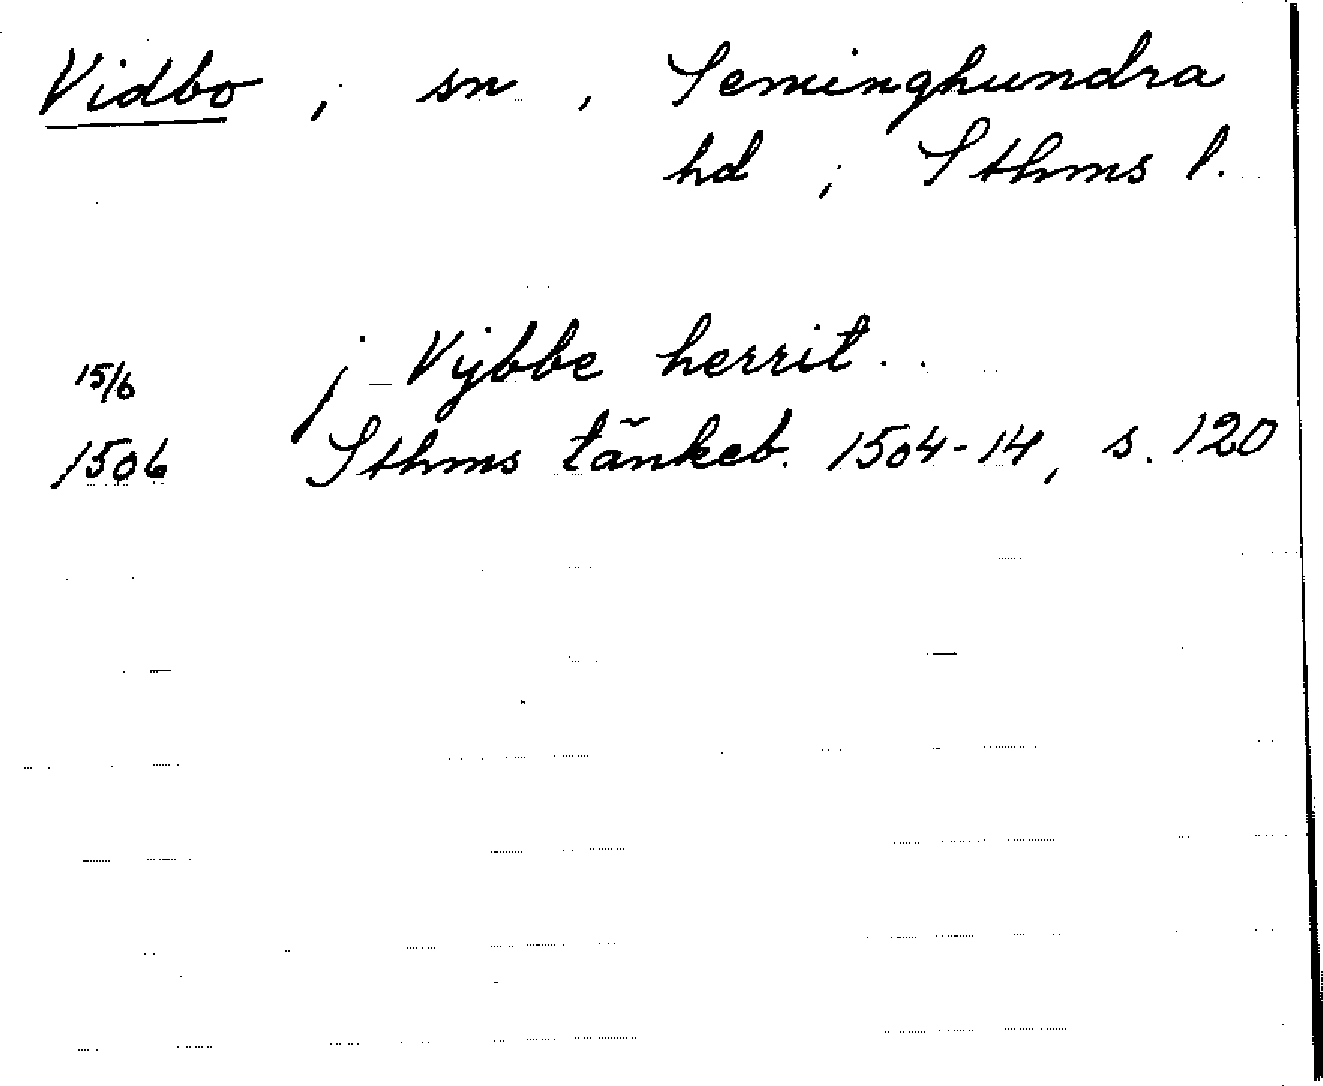 Vidbo, sn, Seminghundra
hd, Sthms l.
15/6 j Vijbbe herrit..
1506 Sthms tänkeb. 1504-14, s. 120